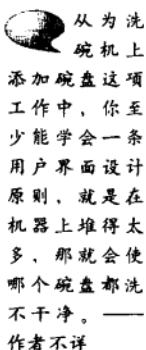 从为洗
碗机上
添加碗盘这项
工作中，你至
少能学会一条
用户界面设计
原则，就是在
机器上堆得太
多，那就会使
哪个碗盘都洗
不干净。——
作者不详